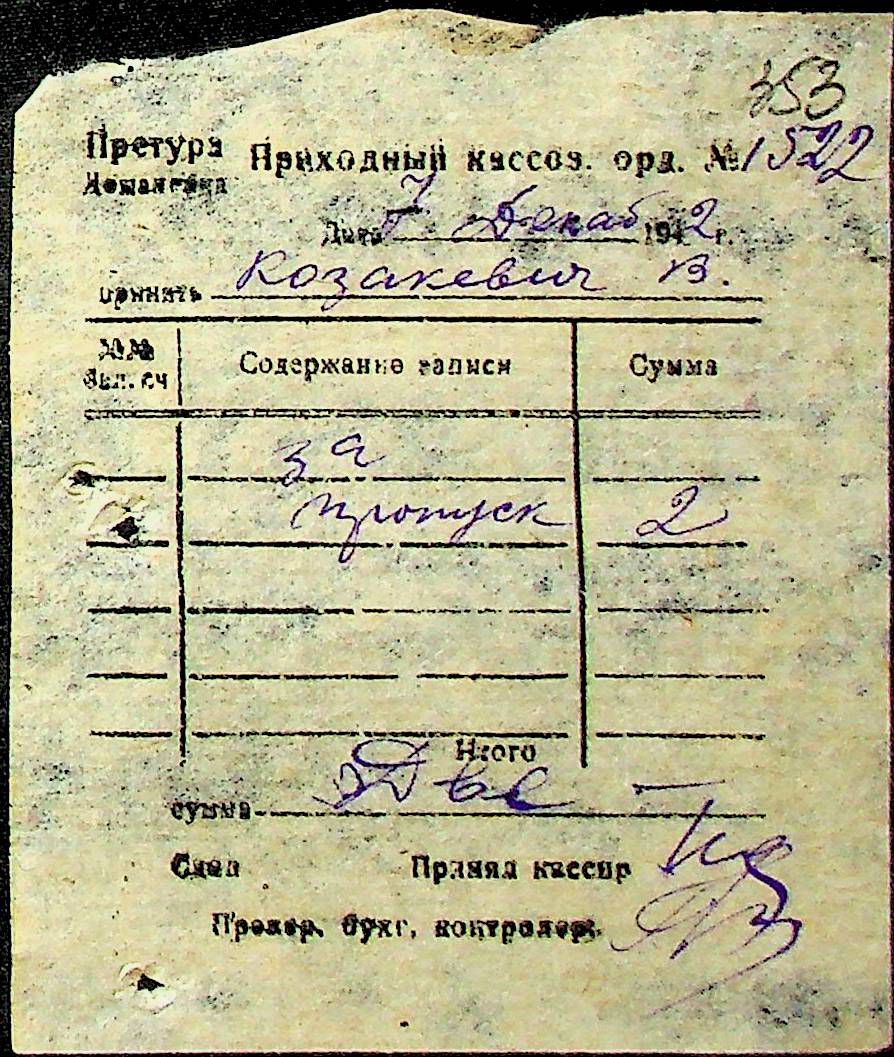 353
Претура Приходный кассов. орд. № 1522
Доманевка
Дата 7 Декаб 1942 г.
принять Козакевич В.
№№ бал. сч Содержание записи Сумма
за
пропуск 2
Итого
сумма Две —
Сдал Принял кассир
Провер. бухг. контролер: